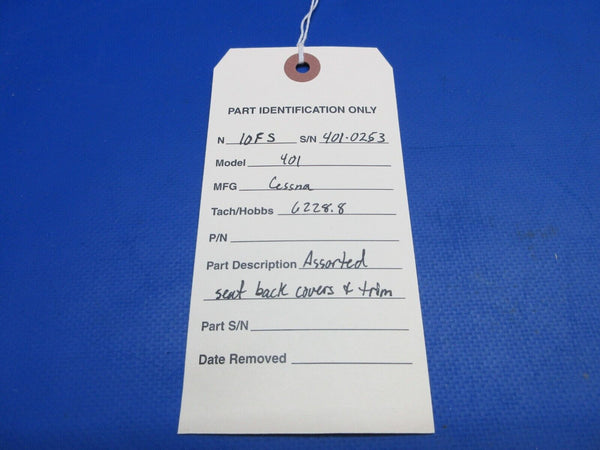 PART IDENTIFICATION ONLY
N 10FS S/N 401-0253
Model 401
MFG Cessna
Tach/Hobbs 6228.8
P/N
Part Description Assorted
seat back covers & trim
Part S/N
Date Removed